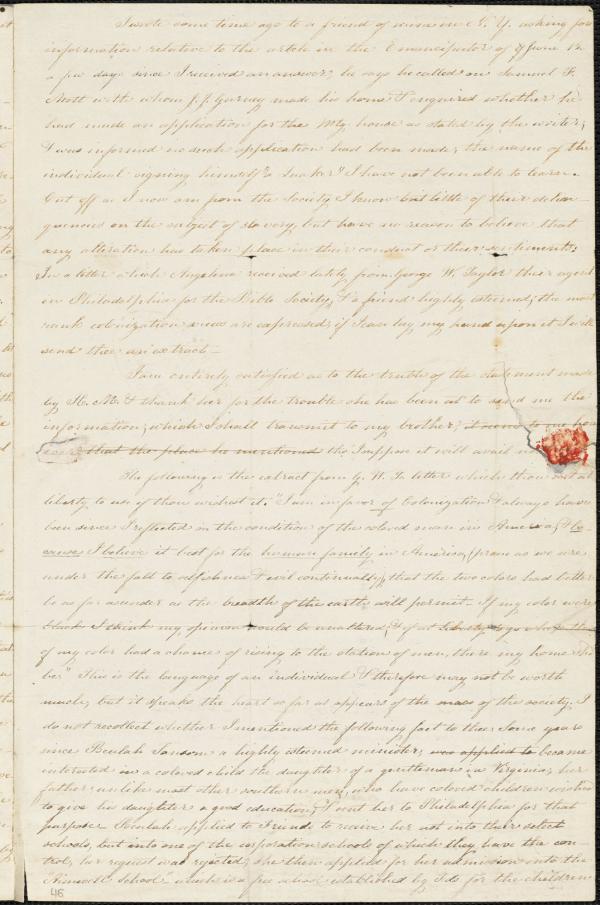 I wrote some time ago to a friend of mine in N. Y. asking for
information relative to the article in the Emancipator of 7 June 12
a few days since I received an answer; he says he called on Samuel F.
Mott with whom J. J. Gurney made his home & enquired whether he
had made an application for the Mtg. house as stated by the writer;
& was informed no such application had been made; the name of the
individual signing himself "a Quaker" I have not been able to learn.
Cut off as I now am from the Society I know but little of their delin-
quences on the subject of slavery, but have no reason to believe that
any alteration has taken place in their conduct or their sentiments.
In a letter which Angelina received lately from George W. Taylor their agent
in Philadelphia for the Bible Society, & a friend highly esteemed; the most
rank colonization views are expressed; if I can lay my hand upon it I will
send thee an extract —
I am entirely satisfied as to the truth of the statement made
by H. M. & thank her for the trouble she has been at to send me the
information, which I shall transmit to my brother; it seems to me how
ever that the place he mentioned tho' I suppose it will avail
The following is the extract from G. W. Ts letter which thou art at
liberty to use if thou wishest it. "I am in favor of Colonization & always have
been since I reflected on the condition of the colored man in America, & be-
cause I believe it best for the human family in America, (prone as we are
under the fall to selfishness & evil continually,) that the two colors had better
be as far asunder as the breadth of the earth will permit. If my color were
black I think my opinion would be unaltered, & if at liberty to go where the
of my color had a chance of rising to the station of men, there my home sho'd
be." This is the language of an individual & therefore may not be worth
much, but it speaks the heart so far as appears of the mass of the society. I
do not recollect whether I mentioned the following fact to thee. Some years
since Beulah Sansom a highly esteemed minister, was applied to became
interested in a colored child the daughter of a gentleman in Virginia; her
father unlike most other southern men, who have colored children wished
to give his daughter a good education, & sent her to Philadelphia for that
purpose. Beulah applied to Friends to receive her not into their select
schools, but into one of the corporation schools of which they have the con-
trol, her request was rejected; she then applied for her admission into the
school" which is a free school established by Fds for the children
46